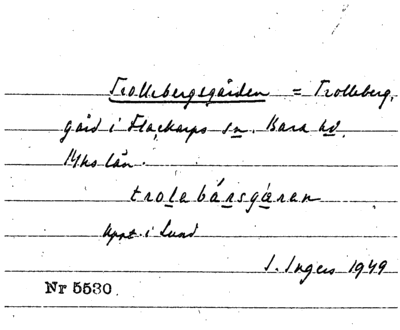 Trollebergsgården = Trolleberg,
gård i Flackarps sn. Bara hd.
Mhs län.
trolabársgæren
uppt. i Lund
I. Ingers 1949
Nr 5530.